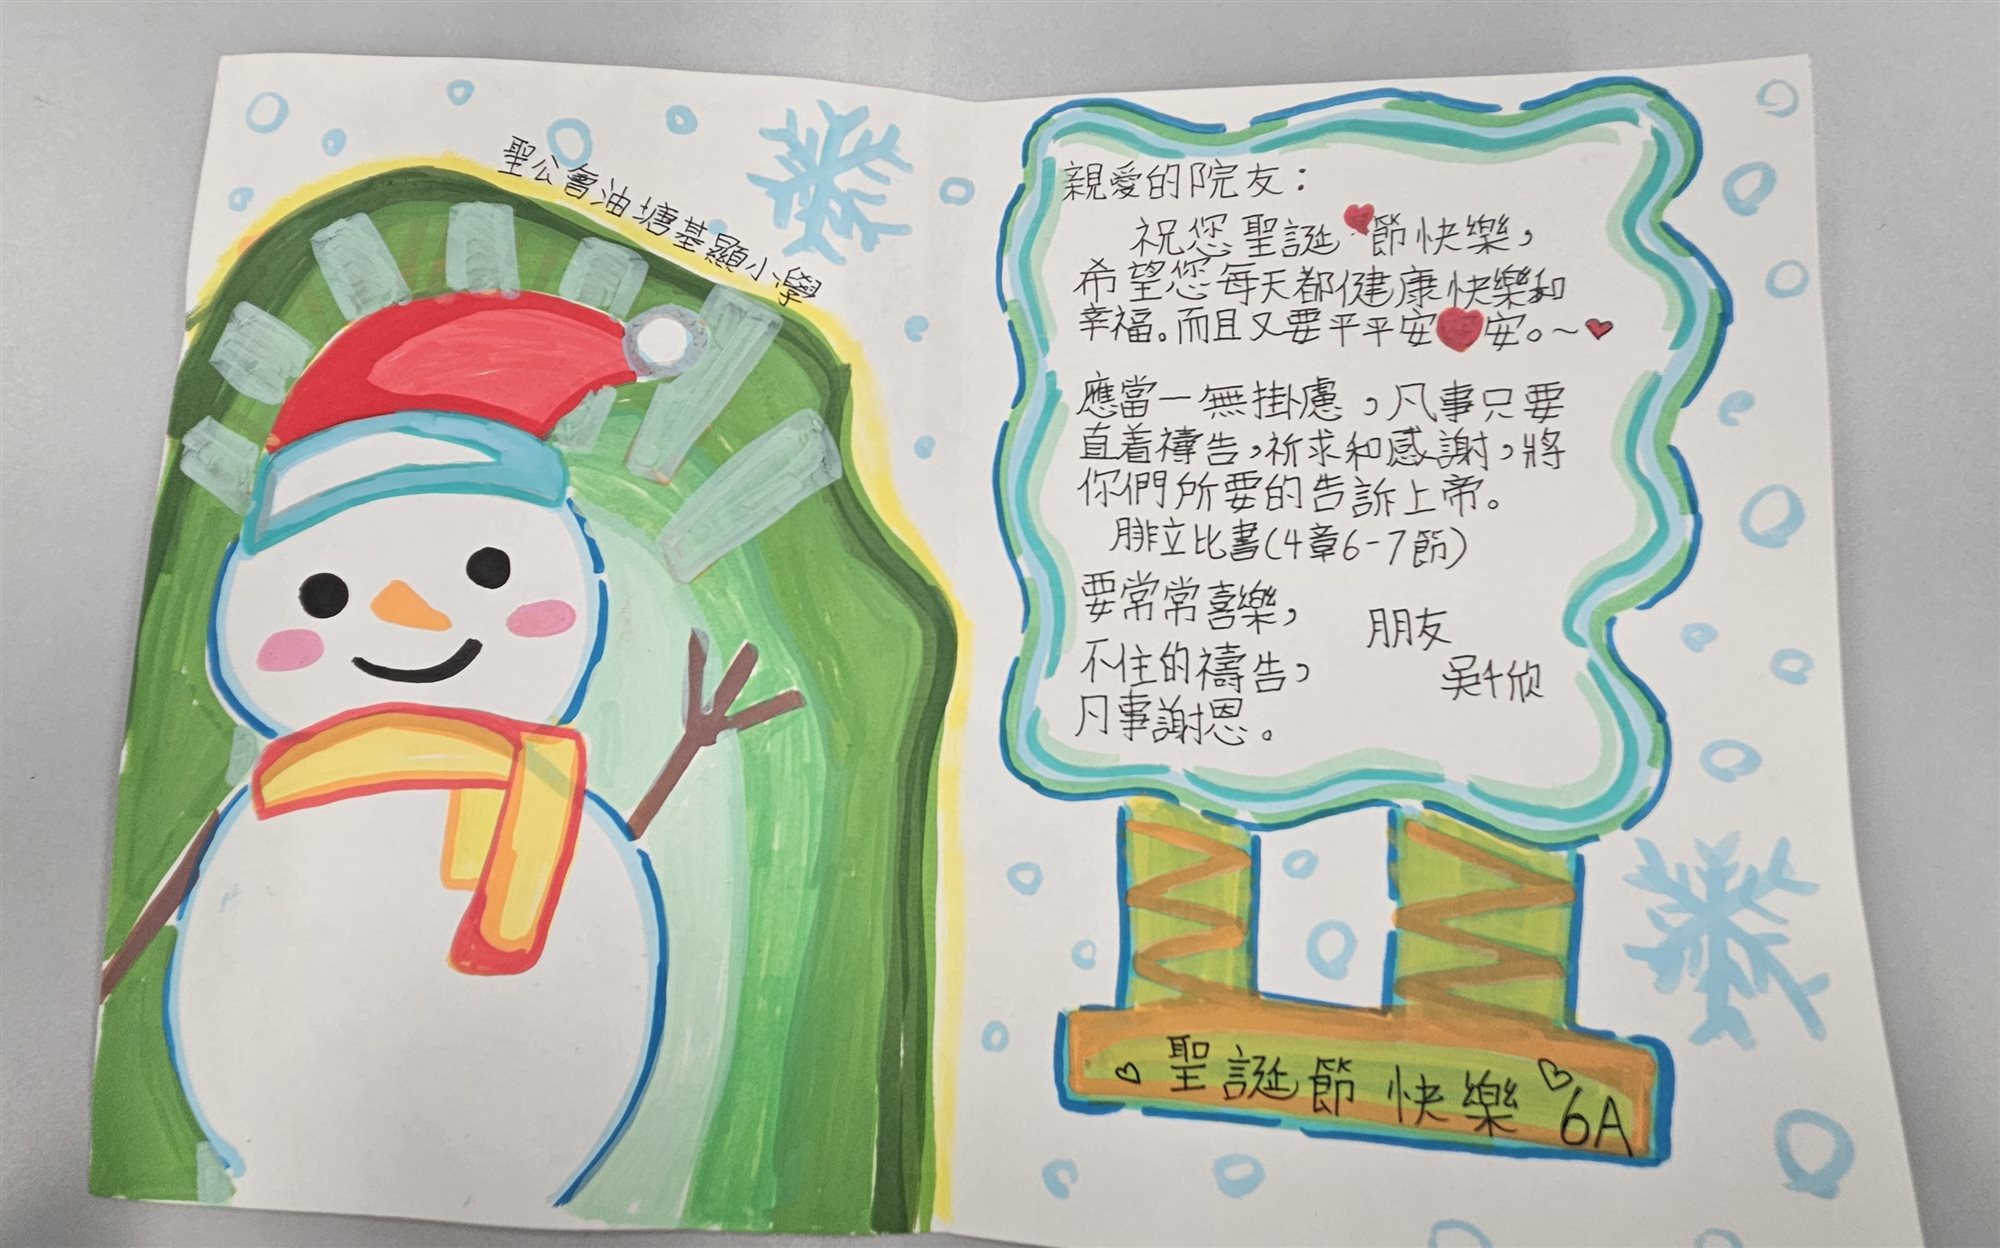 聖公會油塘基顯小學
親愛的院友：
祝您聖誕節快樂，
希望您每天都健康快樂和
幸福。而且又要平平安安。～
應當一無掛慮，凡事只要
直着禱告，祈求和感謝，將
你們所要的告訴上帝。
腓立比書(4章6-7節)
要常常喜樂，
不住的禱告，
凡事謝恩。
朋友
吳千欣
聖誕節快樂 6A